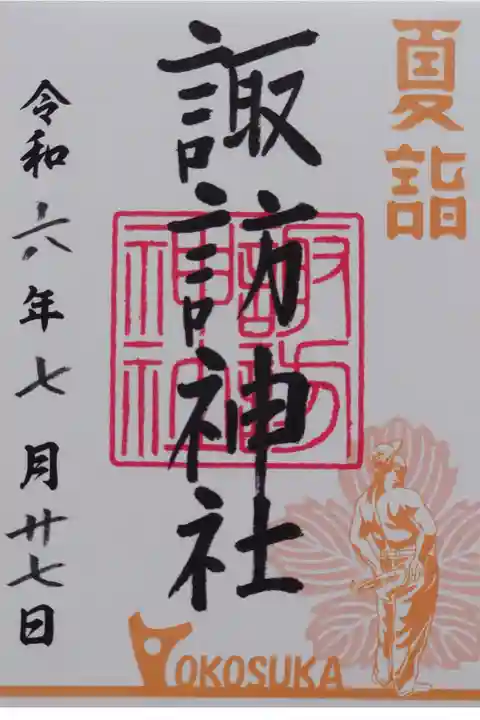 夏詣
諏訪神社
諏訪
神社
令和六年七月廿七日
YOKOSUKA